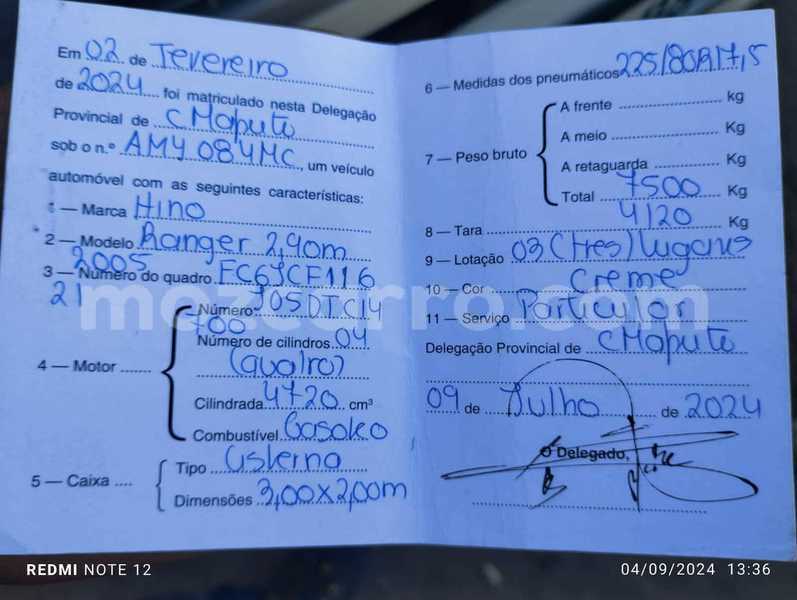 Em 02 de Fevereiro
de 2024 foi matriculado nesta Delegação
Provincial de Maputo
sob o n.º AMY 084MC, um veículo
automóvel com as seguintes características:
1 — Marca Hino
2 — Modelo Ranger 2,90m
2005
3 — Número do quadro FC6JCF116
21
4 — Motor
Número J05DTC14
700
Número de cilindros 04
(quatro)
Cilindrada 4720 cm³
Combustível Gasoleo
5 — Caixa
Tipo Cisterna
Dimensões 3,00x2,00m
6 — Medidas dos pneumáticos 225/80R17,5
7 — Peso bruto
A frente Kg
A meio Kg
A retaguarda Kg
Total 7500 Kg
8 — Tara 4120 Kg
9 — Lotação 03 (tres) lugares
10 — Cor Creme
11 — Serviço Particular
Delegação Provincial de Maputo
09 de Julho de 2024
O Delegado,
mozcarro.com
REDMI NOTE 12
04/09/2024 13:36